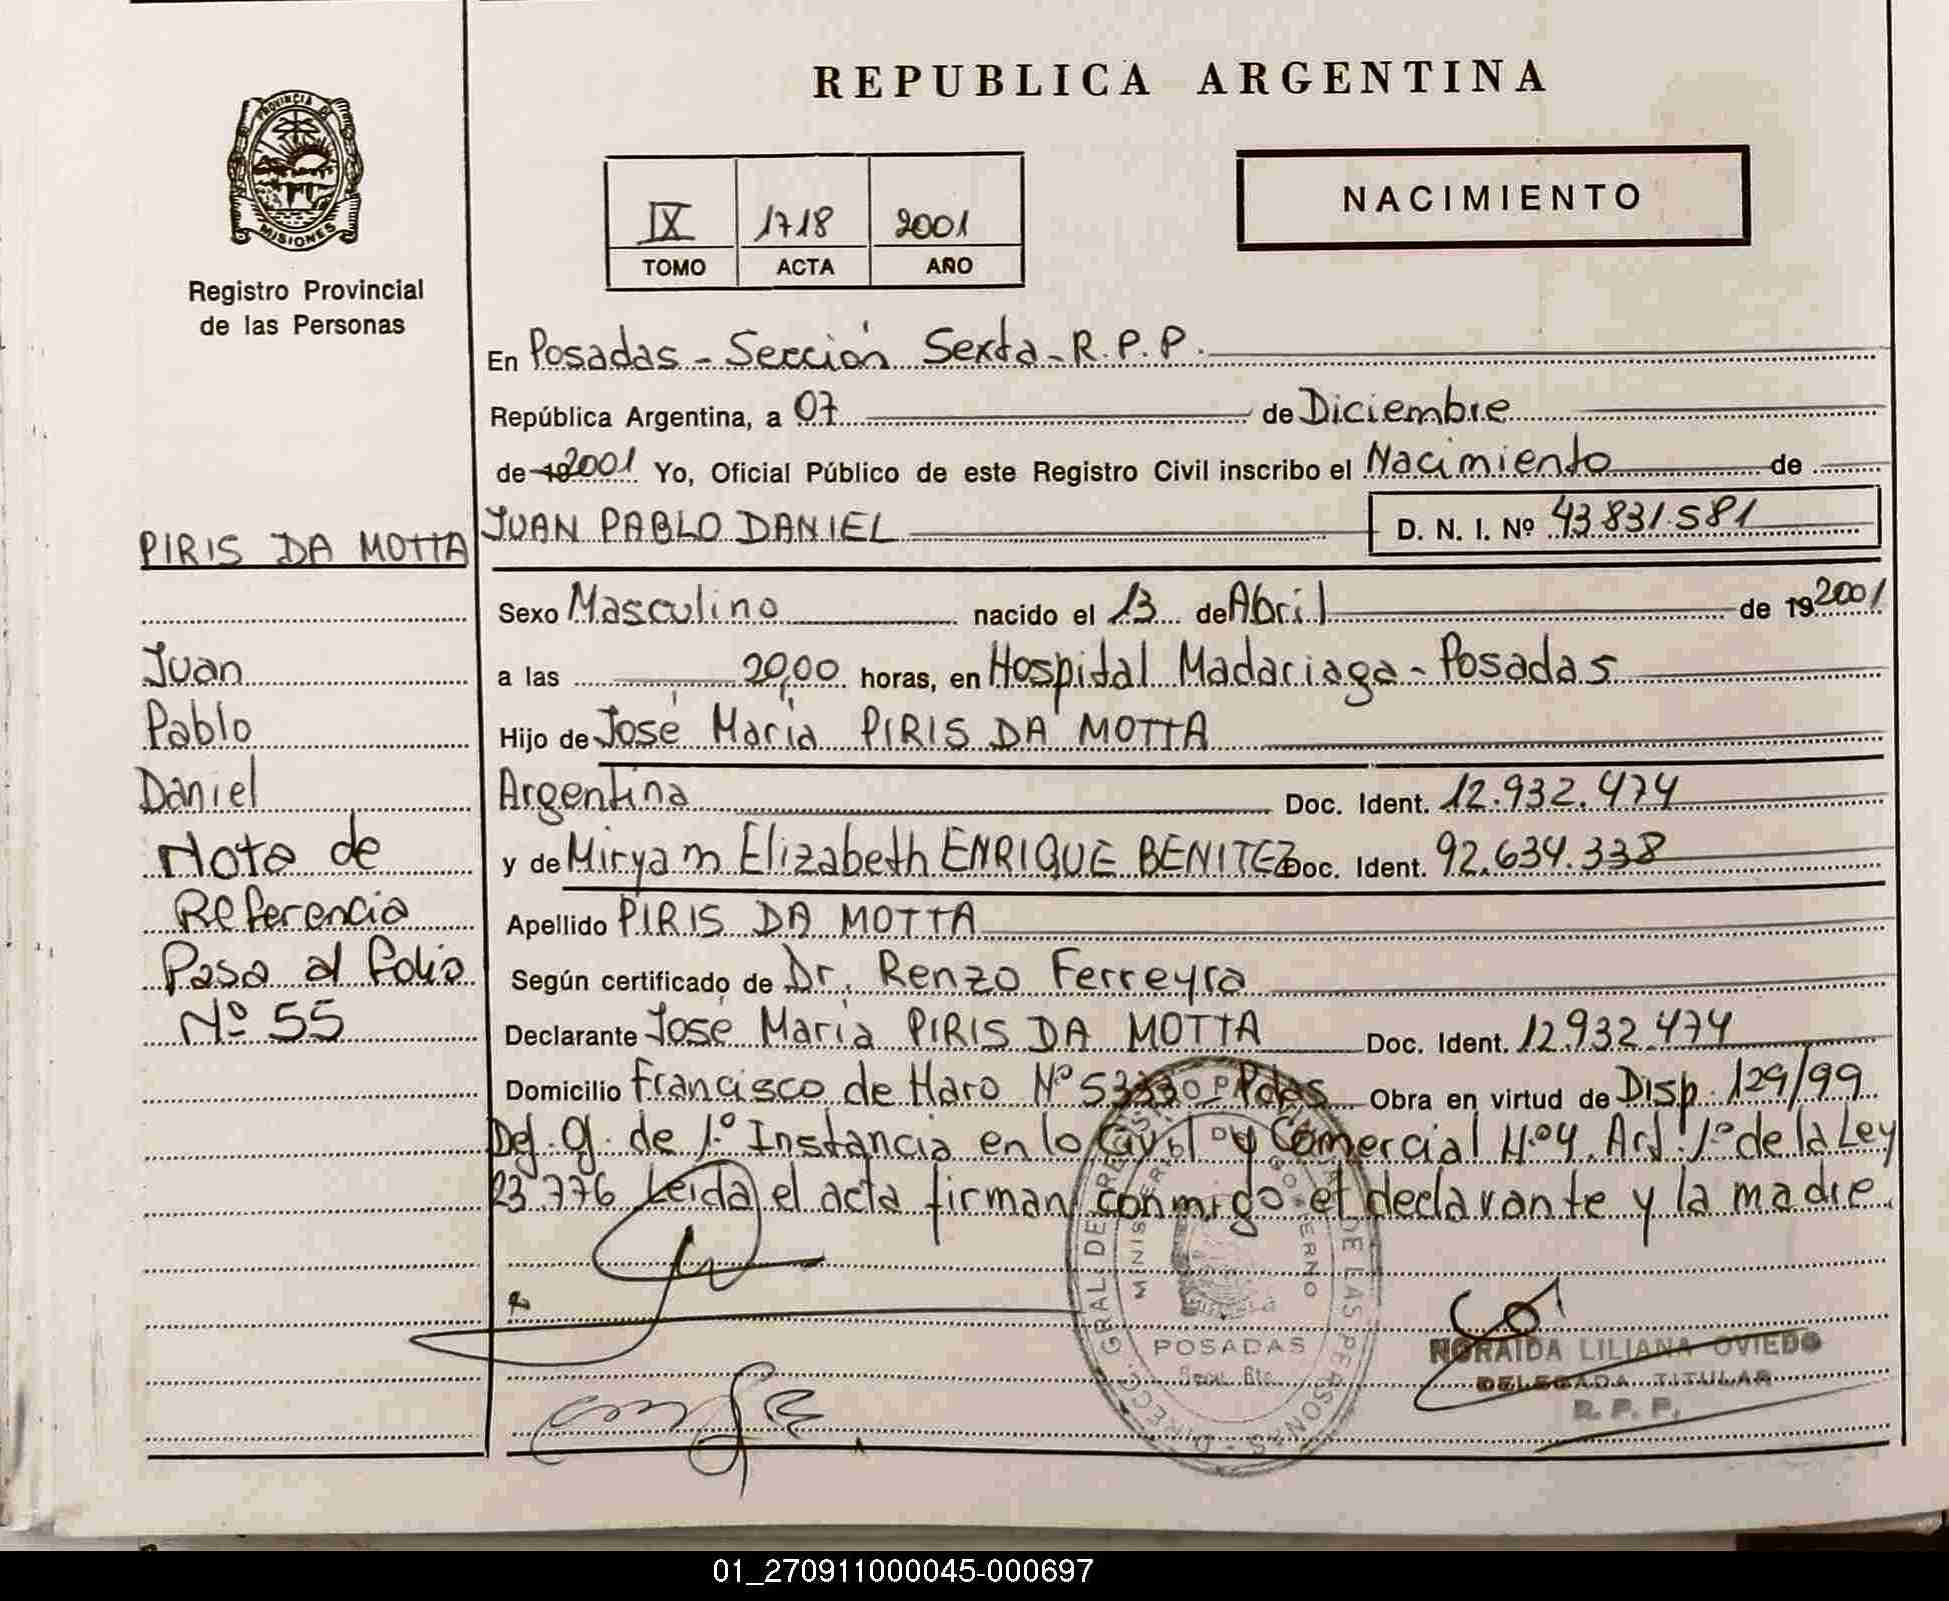 REPUBLICA ARGENTINA
PROVINCIA DE
MISIONES
Registro Provincial
de las Personas
IX 1718 2001
TOMO ACTA AÑO
NACIMIENTO
En Posadas - Sección Sexta - R.P.P.
República Argentina, a 07 de Diciembre
de 19 2001 Yo, Oficial Público de este Registro Civil inscribo el Nacimiento de
JUAN PABLO DANIEL D. N. I. Nº 43.831.581
PIRIS DA MOTTA
Sexo Masculino nacido el 13 de Abril de 19 2001
Juan
a las 20,00 horas, en Hospital Madariaga - Posadas
Pablo
Hijo de José María PIRIS DA MOTTA
Daniel
Argentina Doc. Ident. 12.932.474
Nota de
y de Miryam Elizabeth ENRIQUE BENITEZ Doc. Ident. 92.634.338
Referencia
Apellido PIRIS DA MOTTA
Pasa al folio
Según certificado de Dr. Renzo Ferreyra
Nº 55
Declarante José María PIRIS DA MOTTA Doc. Ident. 12.932.474
Domicilio Francisco de Haro Nº Pdas Obra en virtud de Disp. 129/99
Def. Of. de 1º Instancia en lo Civil y Comercial Nº 4. Art. 1º de la Ley
23.776 Leida el acta firman conmigo el declarante y la madre.
DIRECC. GRAL DE DE LAS PERSONAS
POSADAS
NORAIDA LILIANA OVIEDO
DELEGADA TITULAR
R. P. P.
01_270911000045-000697